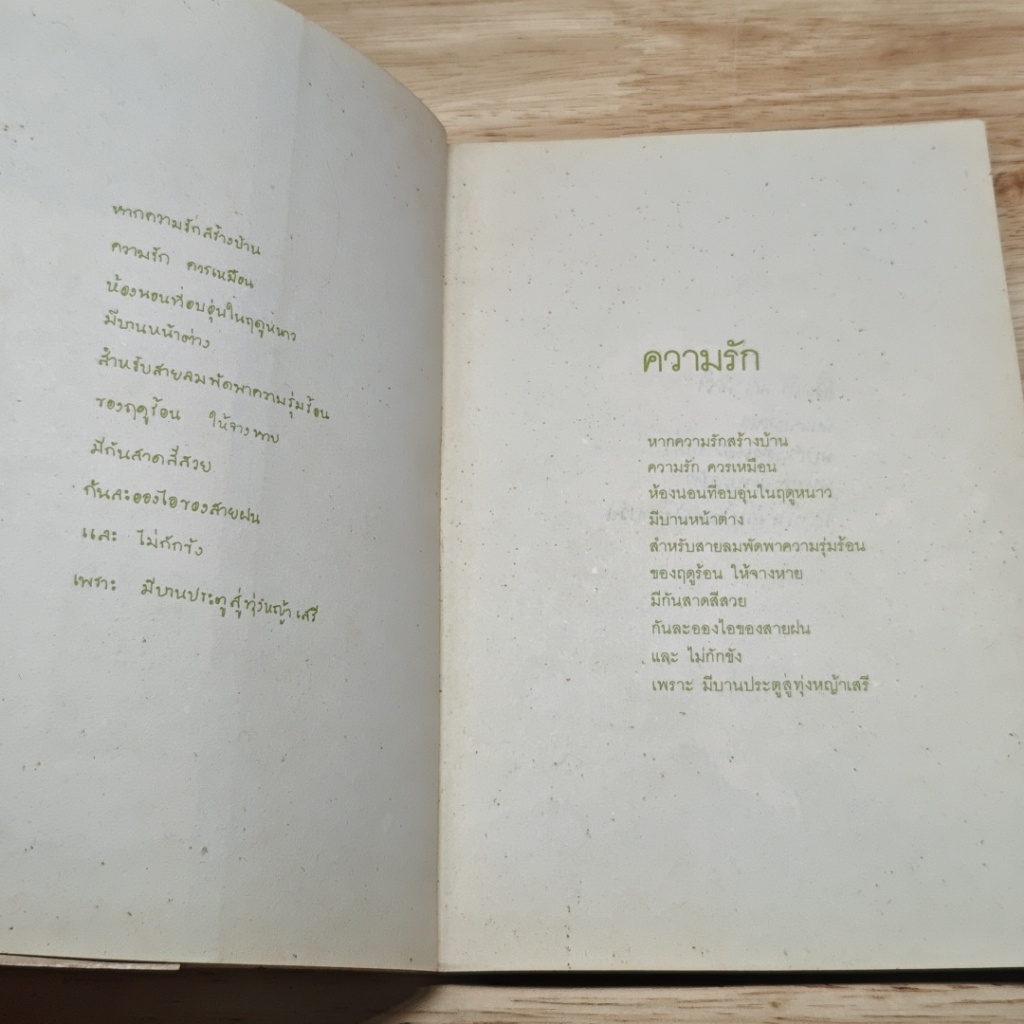 หากความรักสร้างบ้าน
ความรัก ควรเหมือน
ห้องนอนที่อบอุ่นในฤดูหนาว
มีบานหน้าต่าง
สำหรับสายลมพัดพาความรุ่มร้อน
ของฤดูร้อน ให้จางหาย
มีกันสาดสีสวย
กันละอองไอของสายฝน
และ ไม่กักขัง
เพราะ มีบานประตูสู่ทุ่งหญ้าเสรี
ความรัก
หากความรักสร้างบ้าน
ความรัก ควรเหมือน
ห้องนอนที่อบอุ่นในฤดูหนาว
มีบานหน้าต่าง
สำหรับสายลมพัดพาความรุ่มร้อน
ของฤดูร้อน ให้จางหาย
มีกันสาดสีสวย
กันละอองไอของสายฝน
และ ไม่กักขัง
เพราะ มีบานประตูสู่ทุ่งหญ้าเสรี